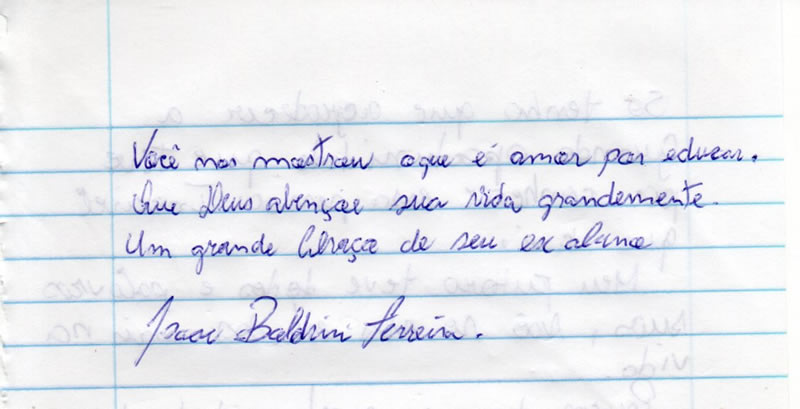 Você nos mostrou oque é amor por educar.
Que Deus abençoe sua vida grandemente.
Um grande Abraço de seu ex aluno
Isaac Baldrin Ferreira.